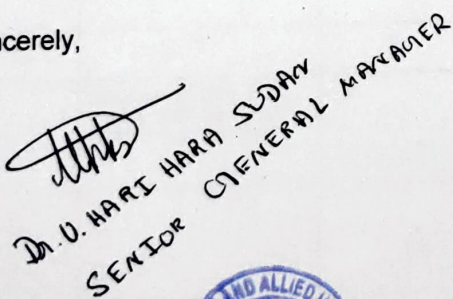 ncerely,
Dr. U. HARI HARA SUDAN
SENIOR GENERAL MANAGER
ND ALLIED